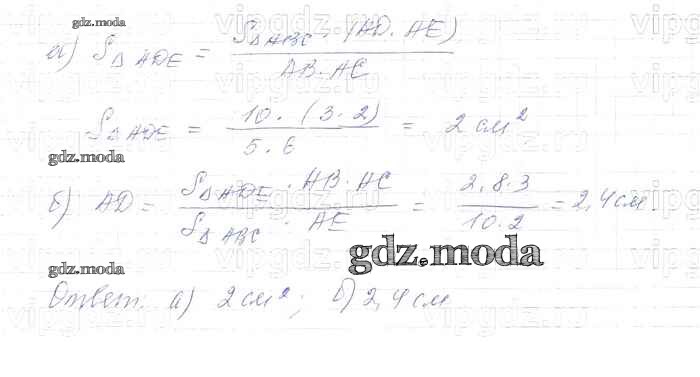 gdz.moda
а) S△ADE = S△ABC · (AD · AE) / AB · AC
S△ADE = 10 · (3 · 2) / 5 · 6 = 2 см²
gdz.moda
б) AD = S△ADE · AB · AC / S△ABC · AE = 2,8·3 / 10·2 = 2,4 см
gdz.moda
gdz.moda
Ответ: а) 2 см²; б) 2,4 см